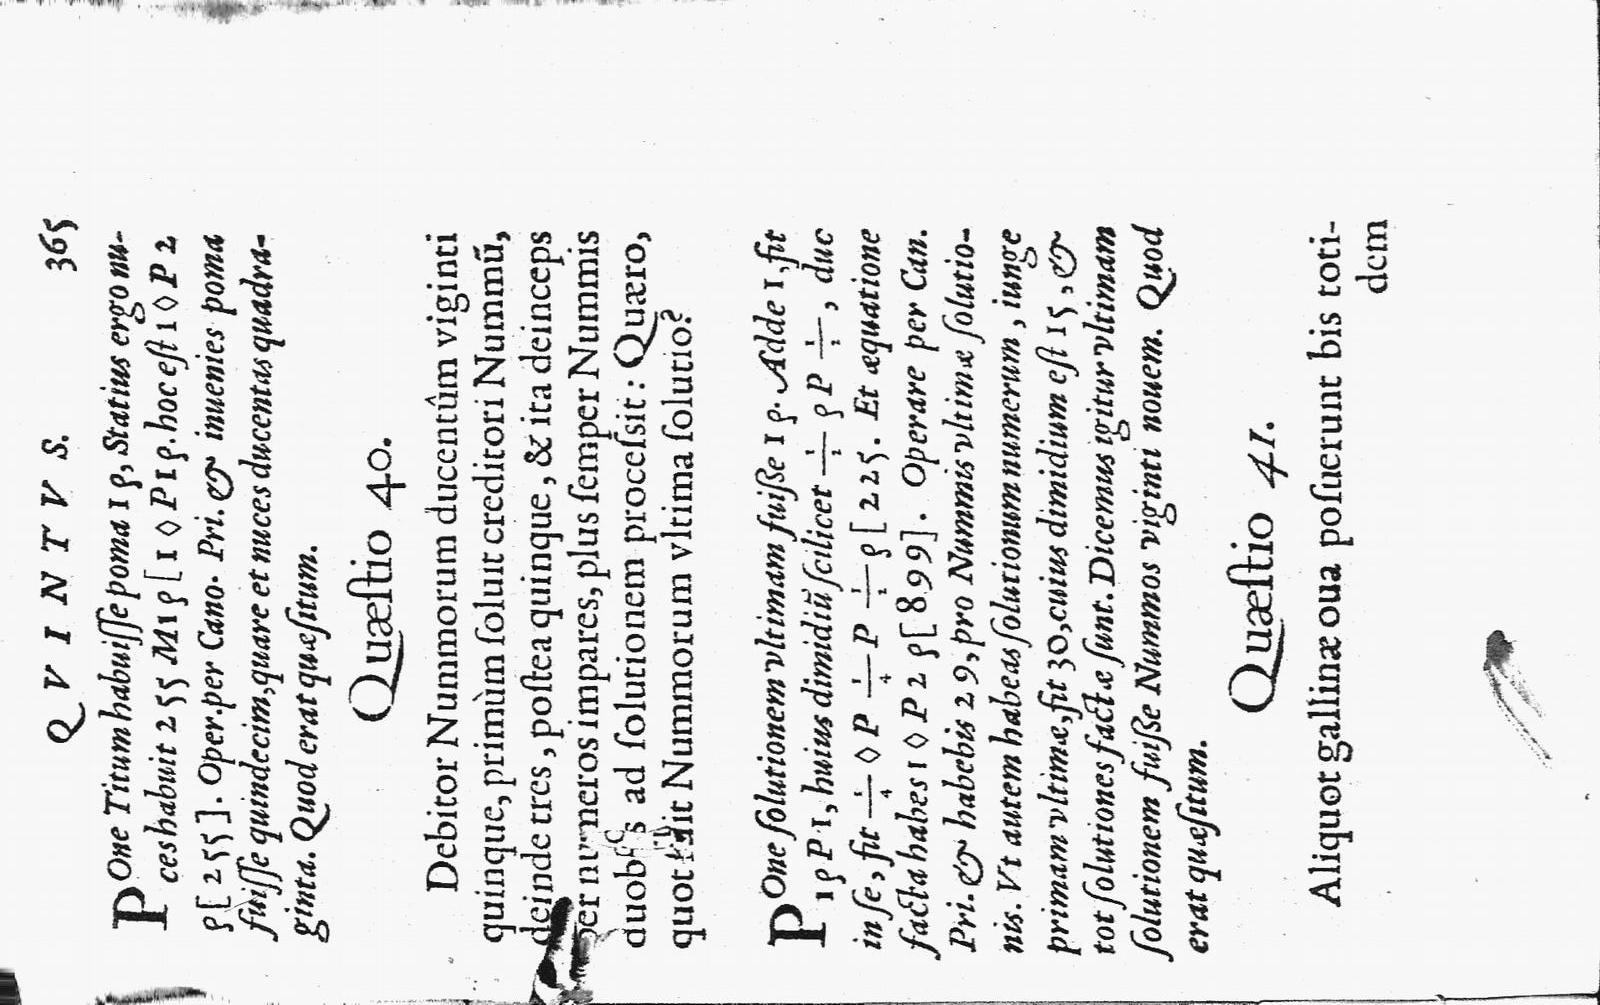 QVINTVS. 365
POne Titum habuiſſe poma 1ρ, Statius ergo nu-
ces habuit 255 M1ρ[1◊P1ρ. hoc eſt 1◊P2
ρ[255]. Oper. per Cano. Pri. & inuenies poma
fuiſſe quindecim, quare et nuces ducentas quadra-
ginta. Quod erat quæſitum.
Quæſtio 40.
Debitor Nummorum ducentûm viginti
quinque, primùm ſoluit creditori Nummũ,
deinde tres, poſtea quinque, & ita deinceps
per numeros impares, plus ſemper Nummis
duobus ad ſolutionem proceſsit: Quæro,
quot fuit Nummorum vltima ſolutio?
POne ſolutionem vltimam fuiſſe 1ρ. Adde 1, fit
1ρP1, huius dimidiũ ſcilicet 1/2 ρP 1/2, duc
in ſe, fit 1/4 ◊P 1/4 P 1/2 ρ[225. Et æquatione
facta habes 1◊P2ρ[899]. Operare per Can.
Pri. & habebis 29, pro Nummis vltimæ ſolutio-
nis. Vt autem habeas ſolutionum numerum, iunge
primam vltimæ, fit 30, cuius dimidium eſt 15, &
tot ſolutiones factæ ſunt. Dicemus igitur vltimam
ſolutionem fuiſſe Nummos viginti nouem. Quod
erat quæſitum.
Quæſtio 41.
Aliquot gallinæ oua poſuerunt bis toti-
dem